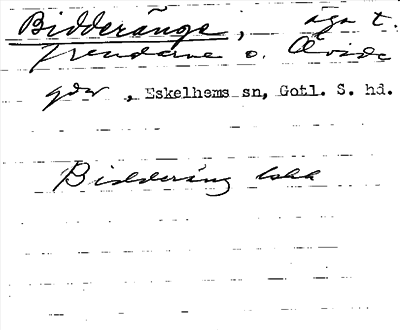 Bidderänge, äga t.
Frendarve o. Övide
gdar, Eskelhems sn, Gotl. S. hd.
Bidderäng